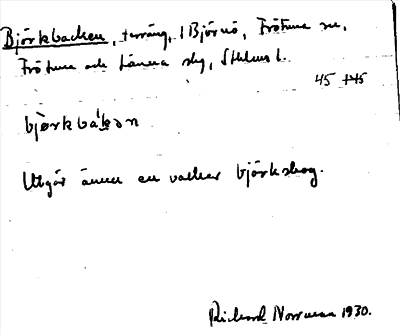 Björkbacken, terräng, i Björnö, Frötuna sn,
Frötuna och Länna skg, Sthlms l.
45
bjørkbákan
Utgör ännu en vacker björkskog.
Richard Norrman 1930.